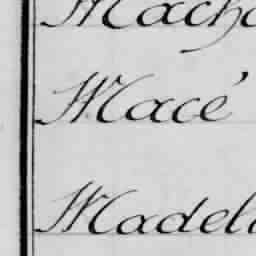 Macho
Macé
Madel